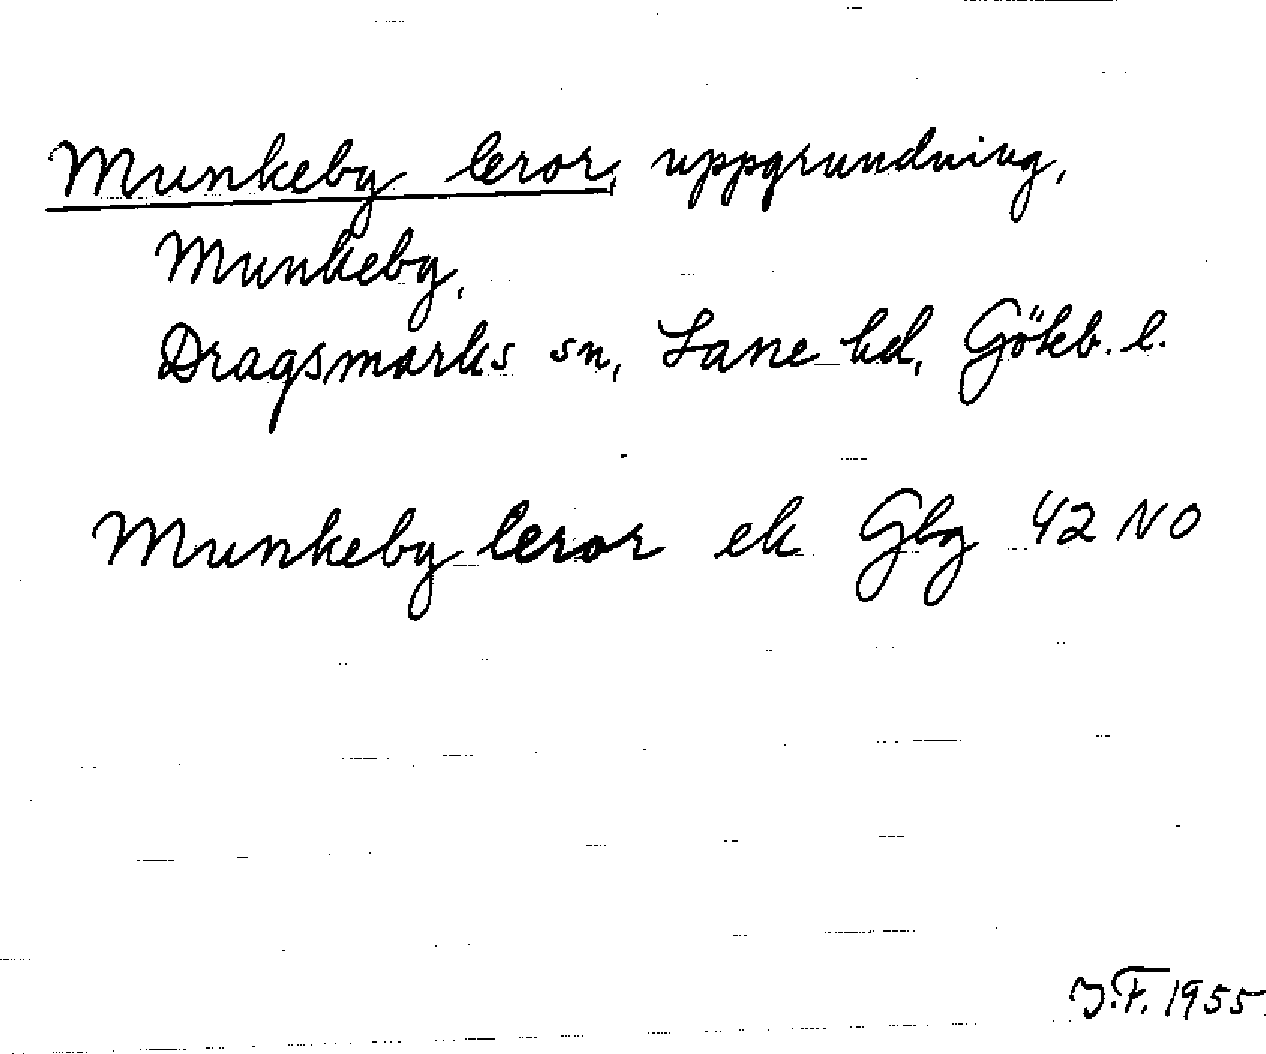 Munkeby leror, uppgrundning,
Munkeby,
Dragsmarks sn, Lane hd, Gökb. l.
Munkeby leror ek Gbg 42 NO
J.F. 1955